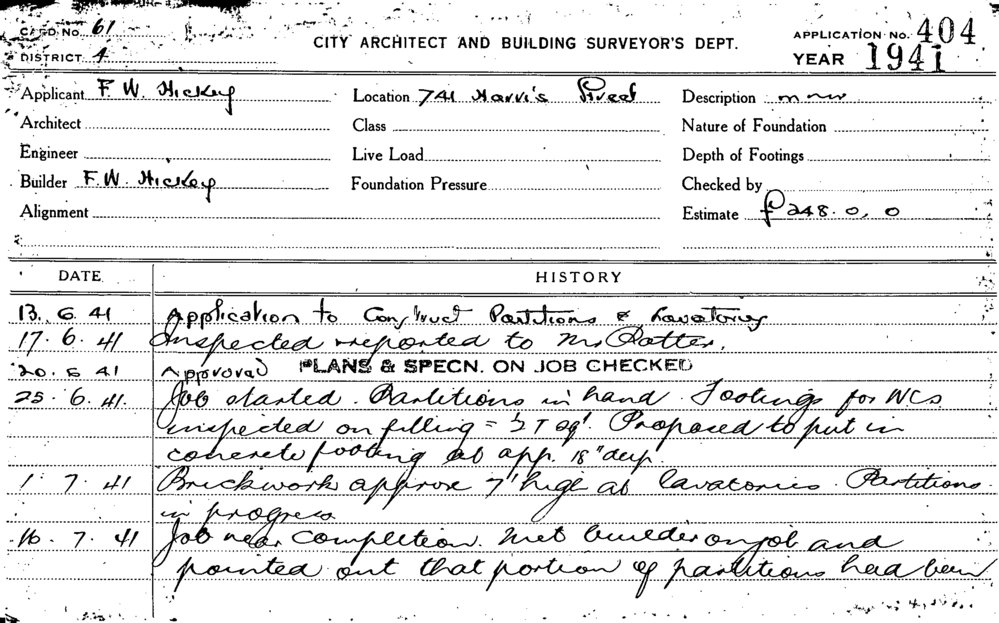 CARD No. 61
DISTRICT 4
CITY ARCHITECT AND BUILDING SURVEYOR'S DEPT.
APPLICATION No. 404
YEAR 1941
Applicant F. W. Hickey Location 741 Harris Street Description
Architect Class Nature of Foundation
Engineer Live Load Depth of Footings
Builder F. W. Hickey Foundation Pressure Checked by
Alignment Estimate £248. 0. 0
DATE HISTORY
13. 6. 41 Application to Construct Partitions & Lavatories
17. 6. 41 Inspected & reported to Mr Potter.
20. 6 41 Approved PLANS & SPECN. ON JOB CHECKED
25. 6. 41. Job started. Partitions in hand. Footings for WCs
inspected on filling = ½ T sq'. Proposed to put in
concrete footing at app. 18" deep.
1. 7. 41 Brickwork approx 7' high at lavatories. Partitions
in progress
16. 7. 41 Job near completion. Met builder on job and
pointed out that portion of partitions had been